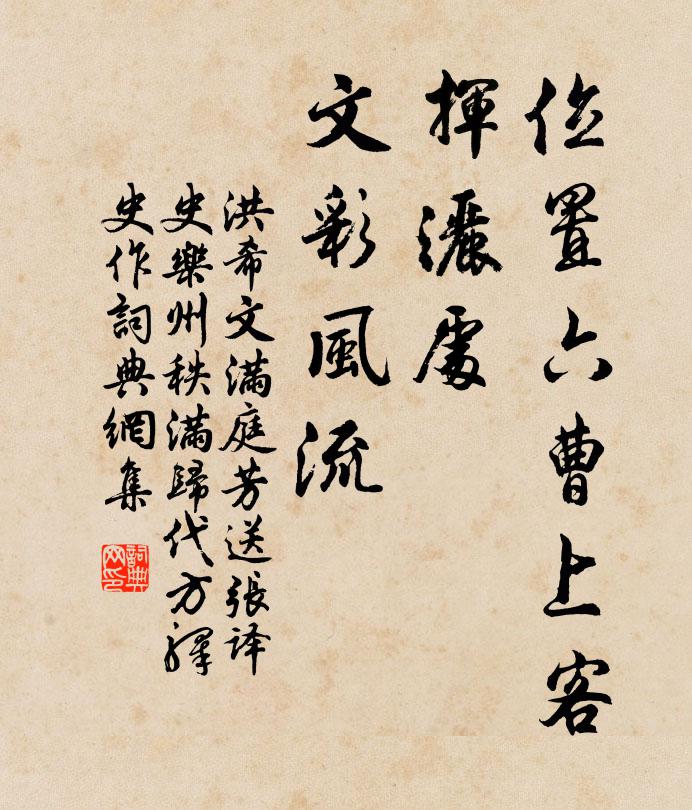 位置六曹上客
揮灑處
文彩風流
洪希文满庭芳送張译
史樂州秩满歸代方釋
史作詞典網集
詞典网印